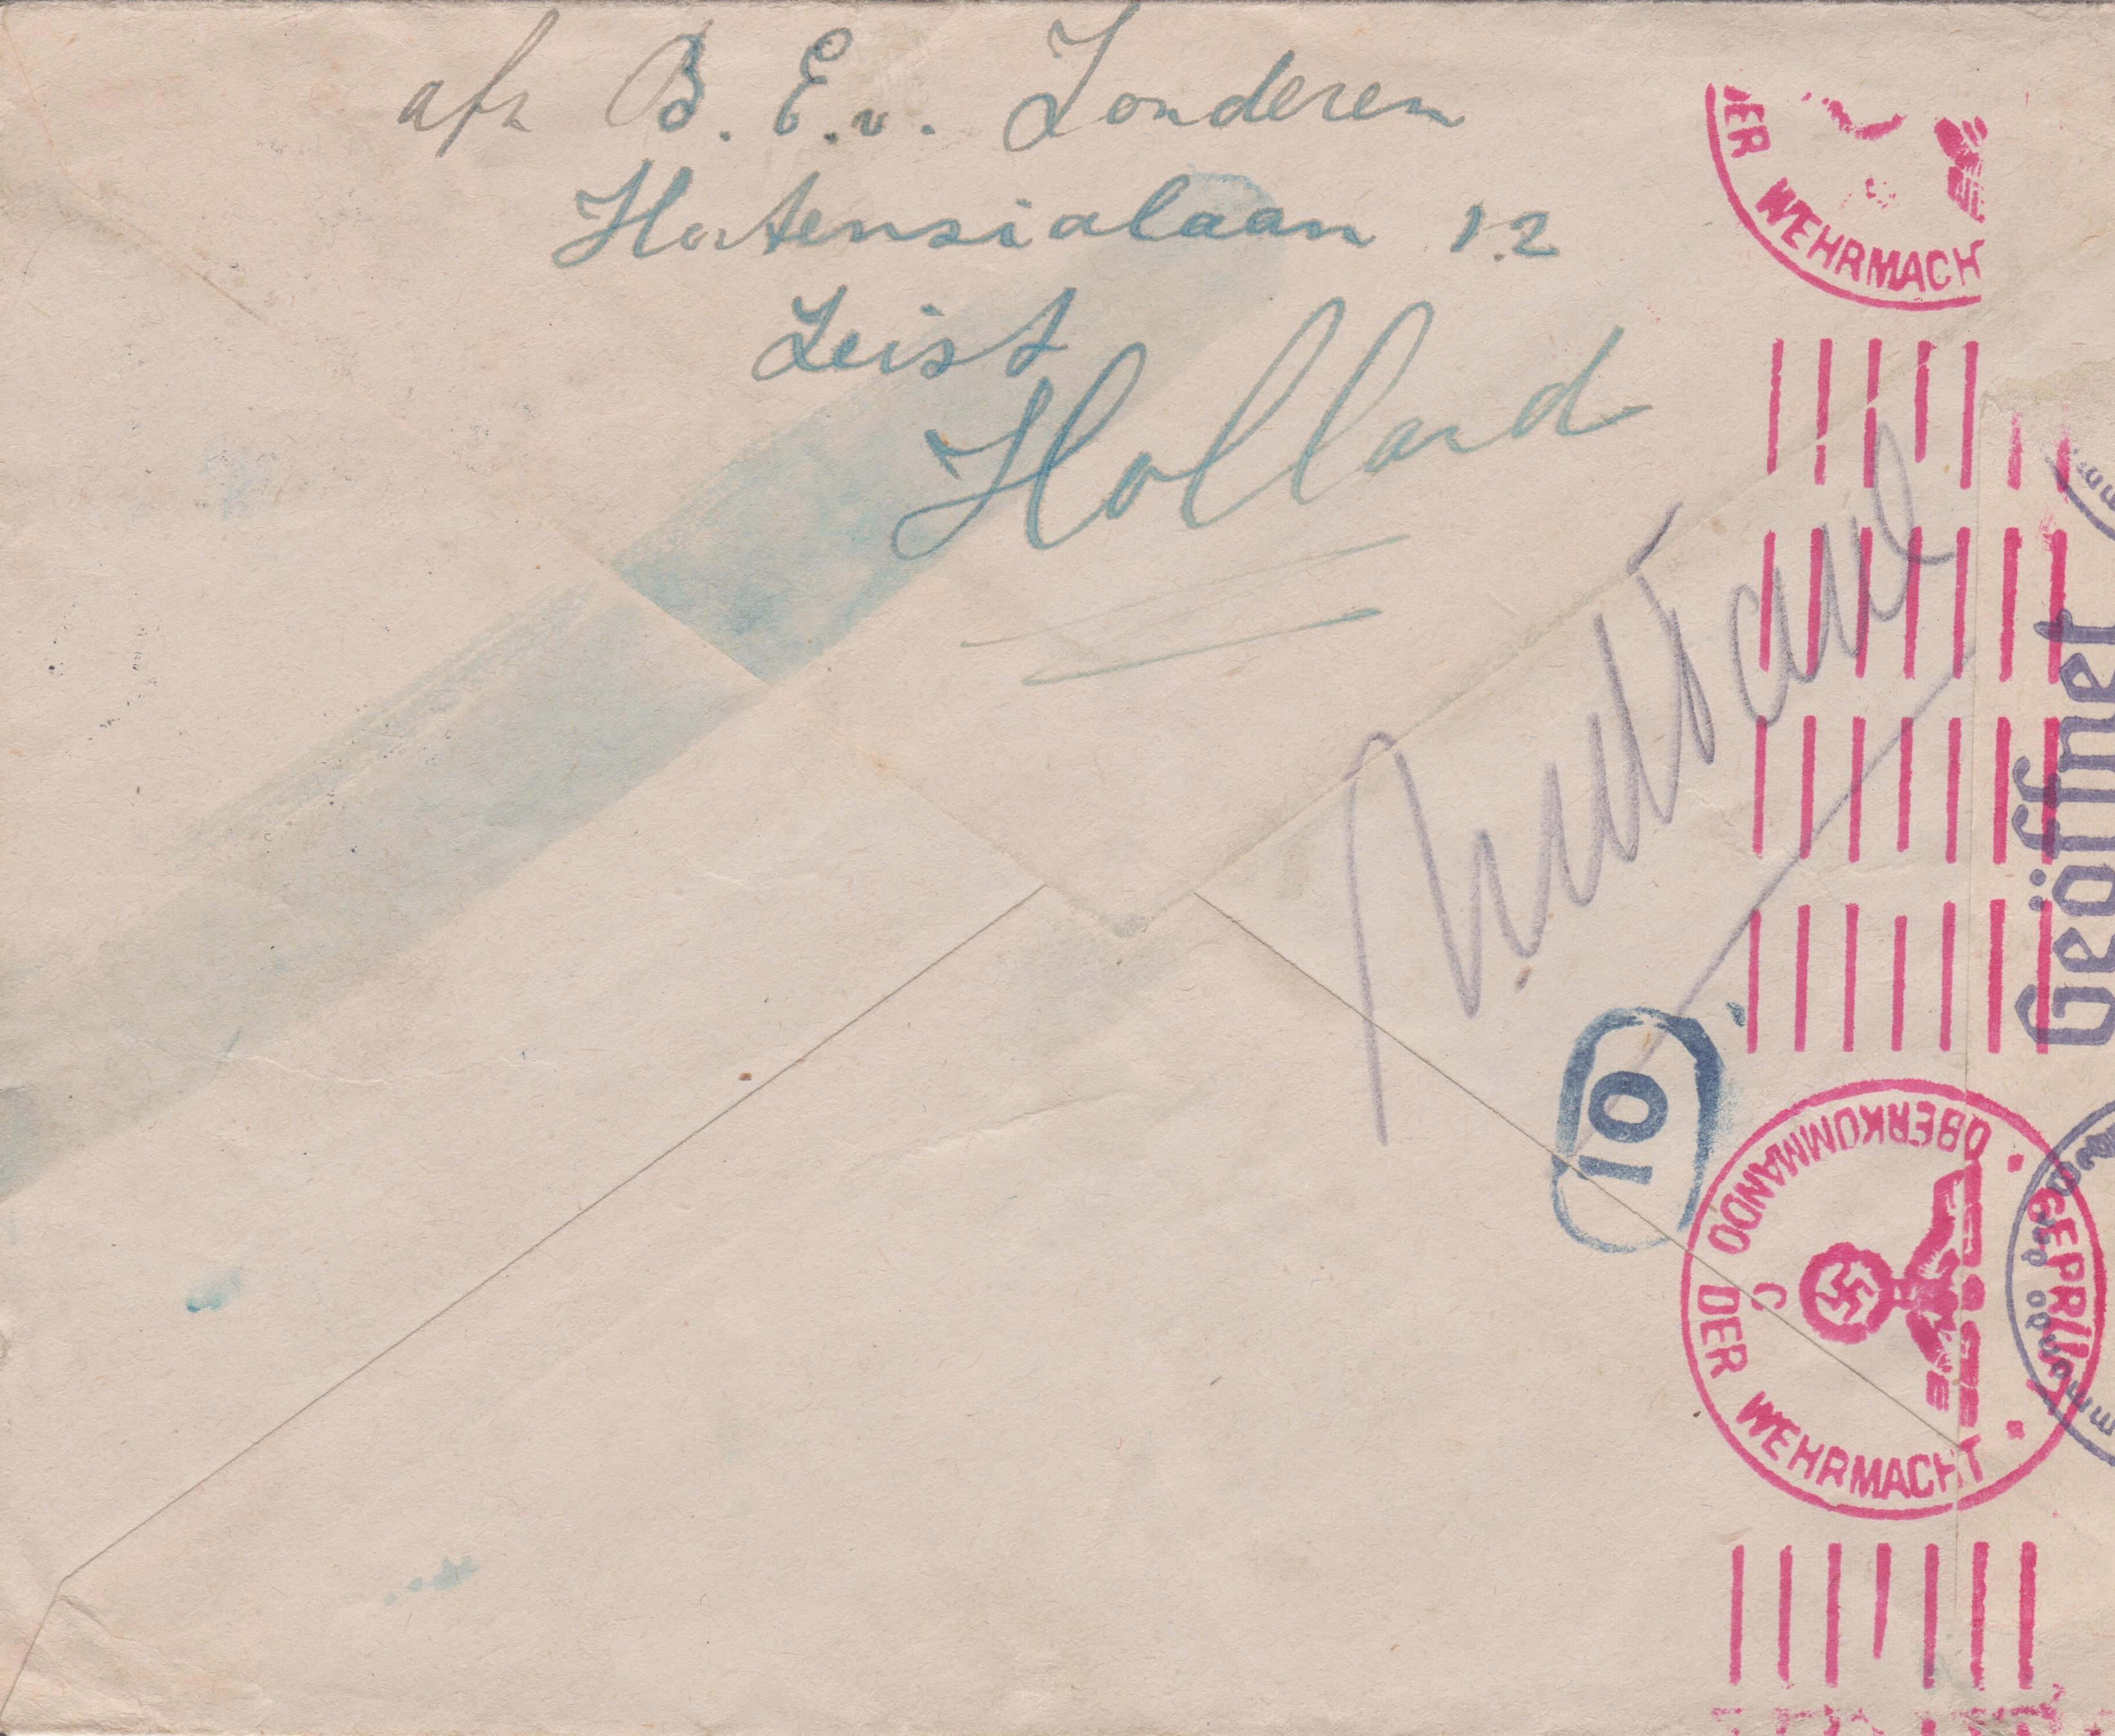 afz B. E. v. Zonderen
Hortensialaan 12
Zeist
Holland
DER WEHRMACH
Geöffnet
10
OBERKOMMANDO DER WEHRMACHT
GEPRÜFT
C